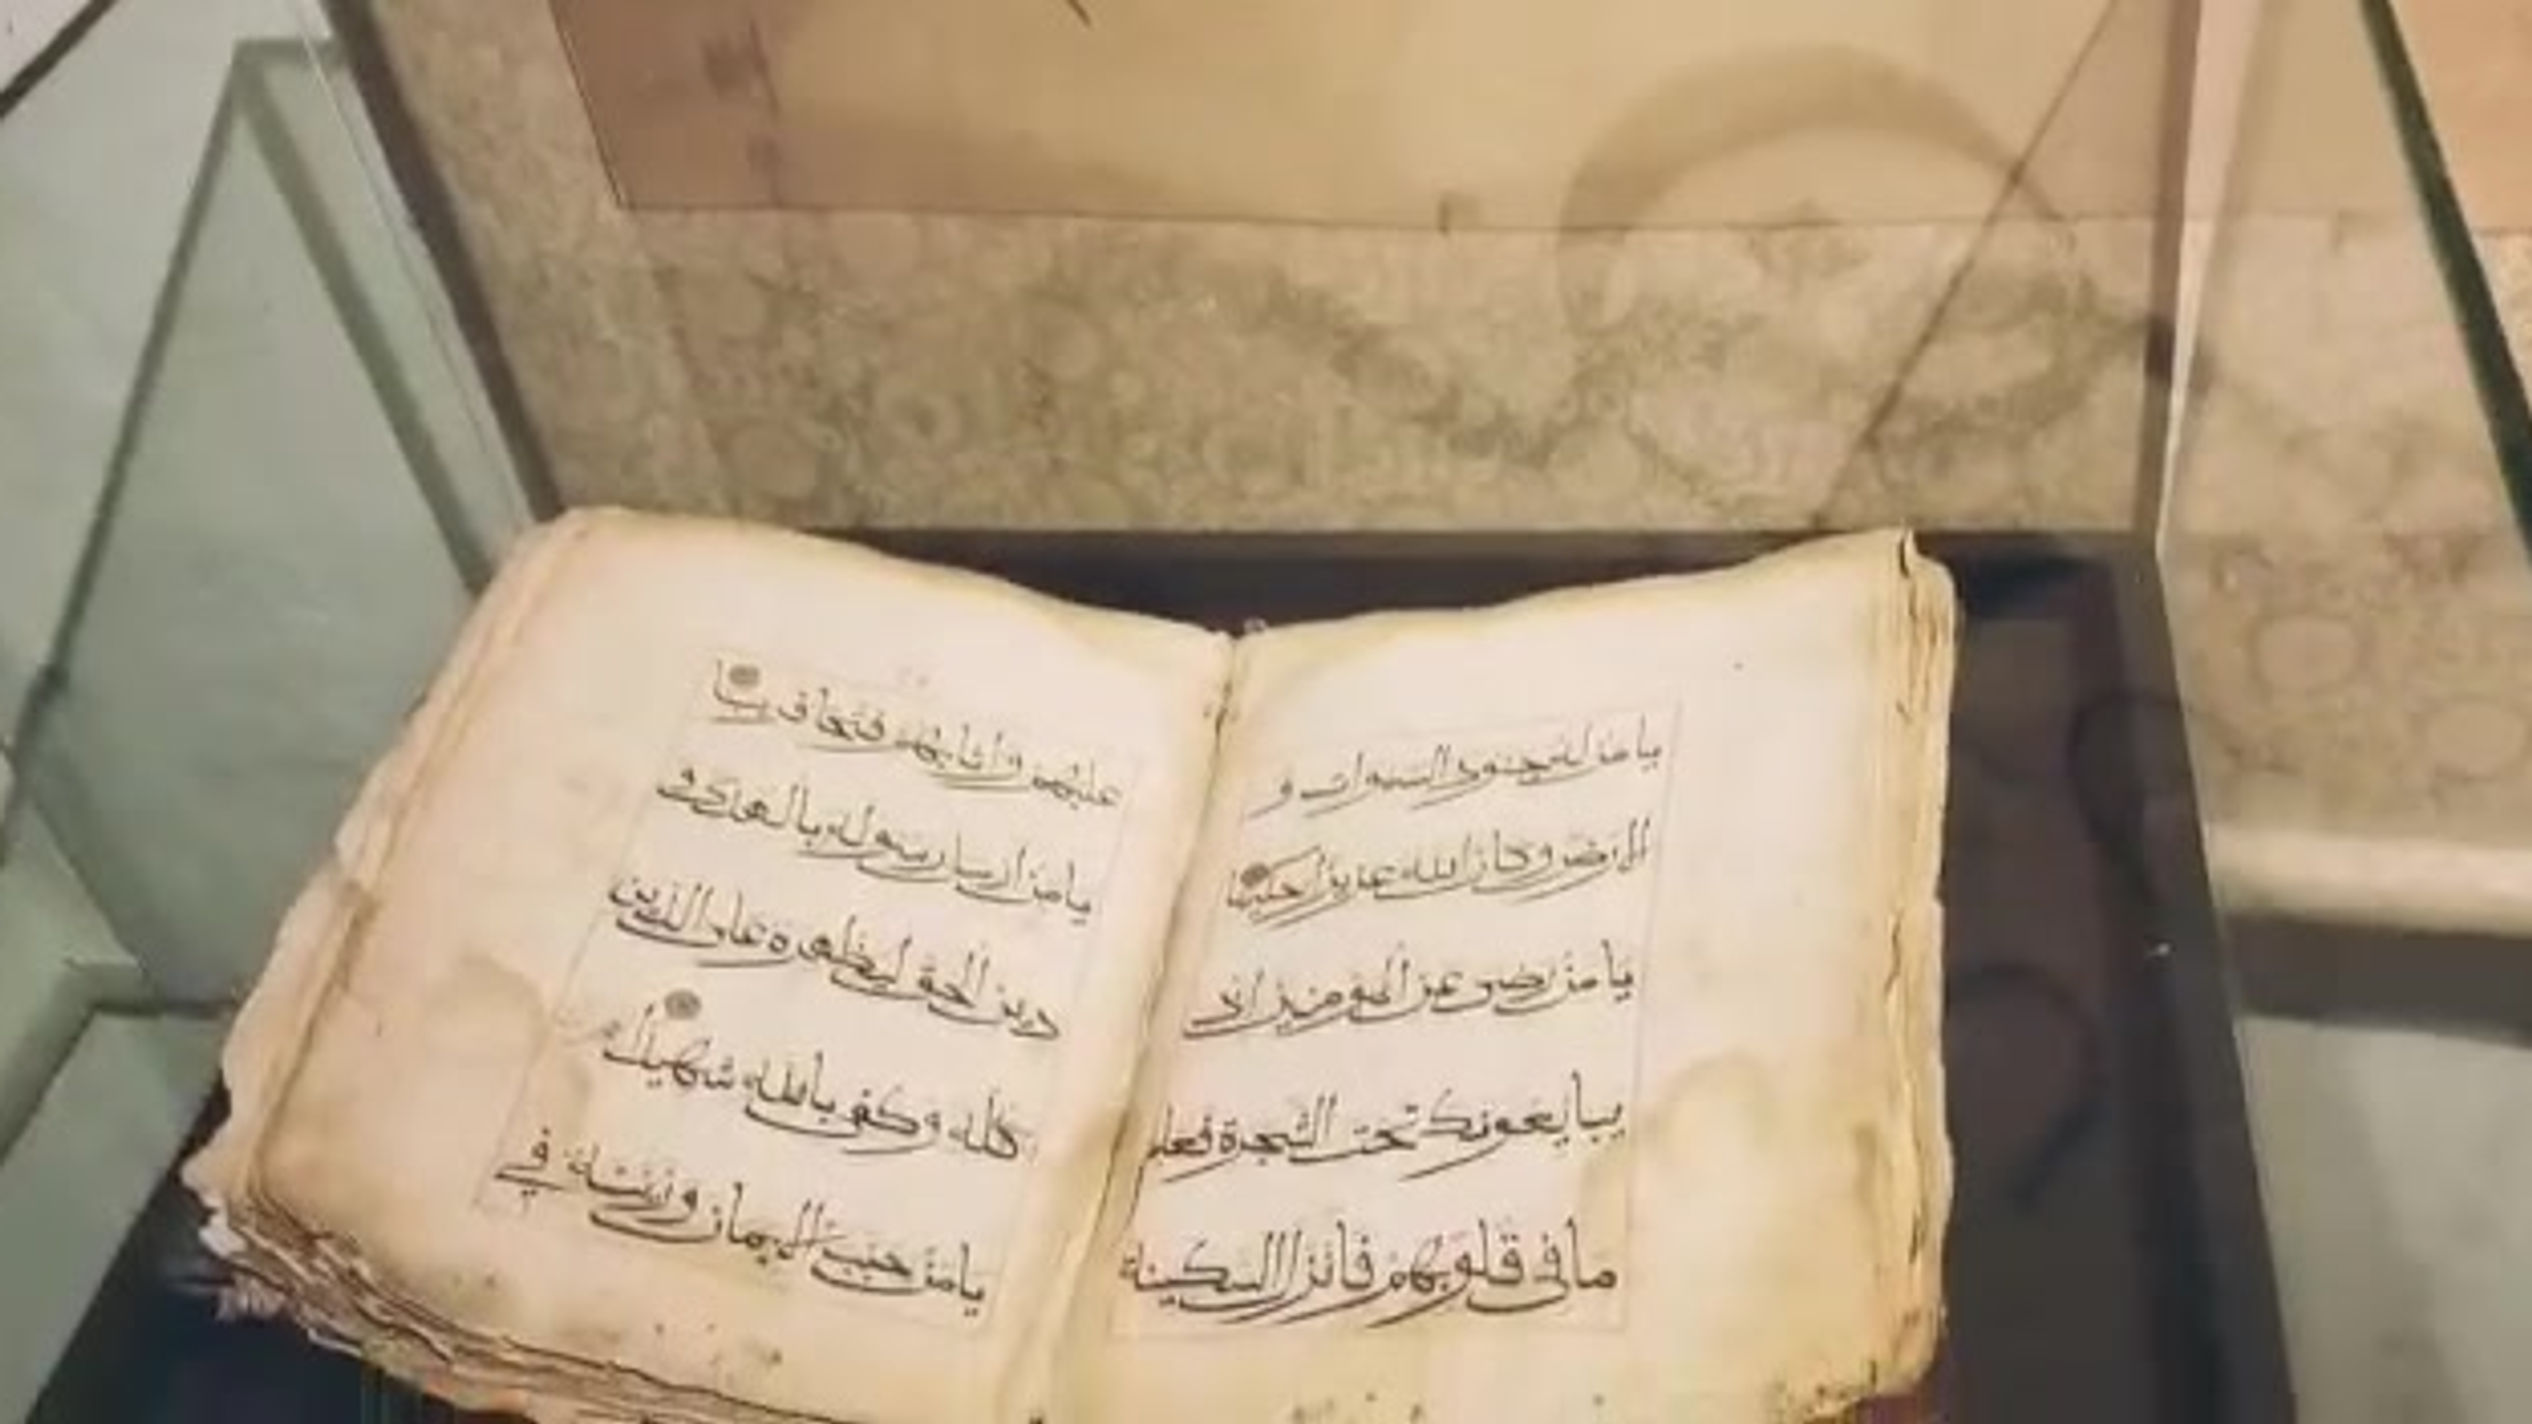 يا من له جنود السموات و
الارض وكان الله عزيزا حكيما
يا من رضي عن المؤمنين اذ
يبايعونك تحت الشجرة فعلم
ما في قلوبهم فانزل السكينة
عليهم واثابهم فتحا قريبا
يا من ارسل رسوله بالهدى و
دين الحق ليظهره على الدين
كله وكفى بالله شهيدا
يا من حبب الايمان وزينه في